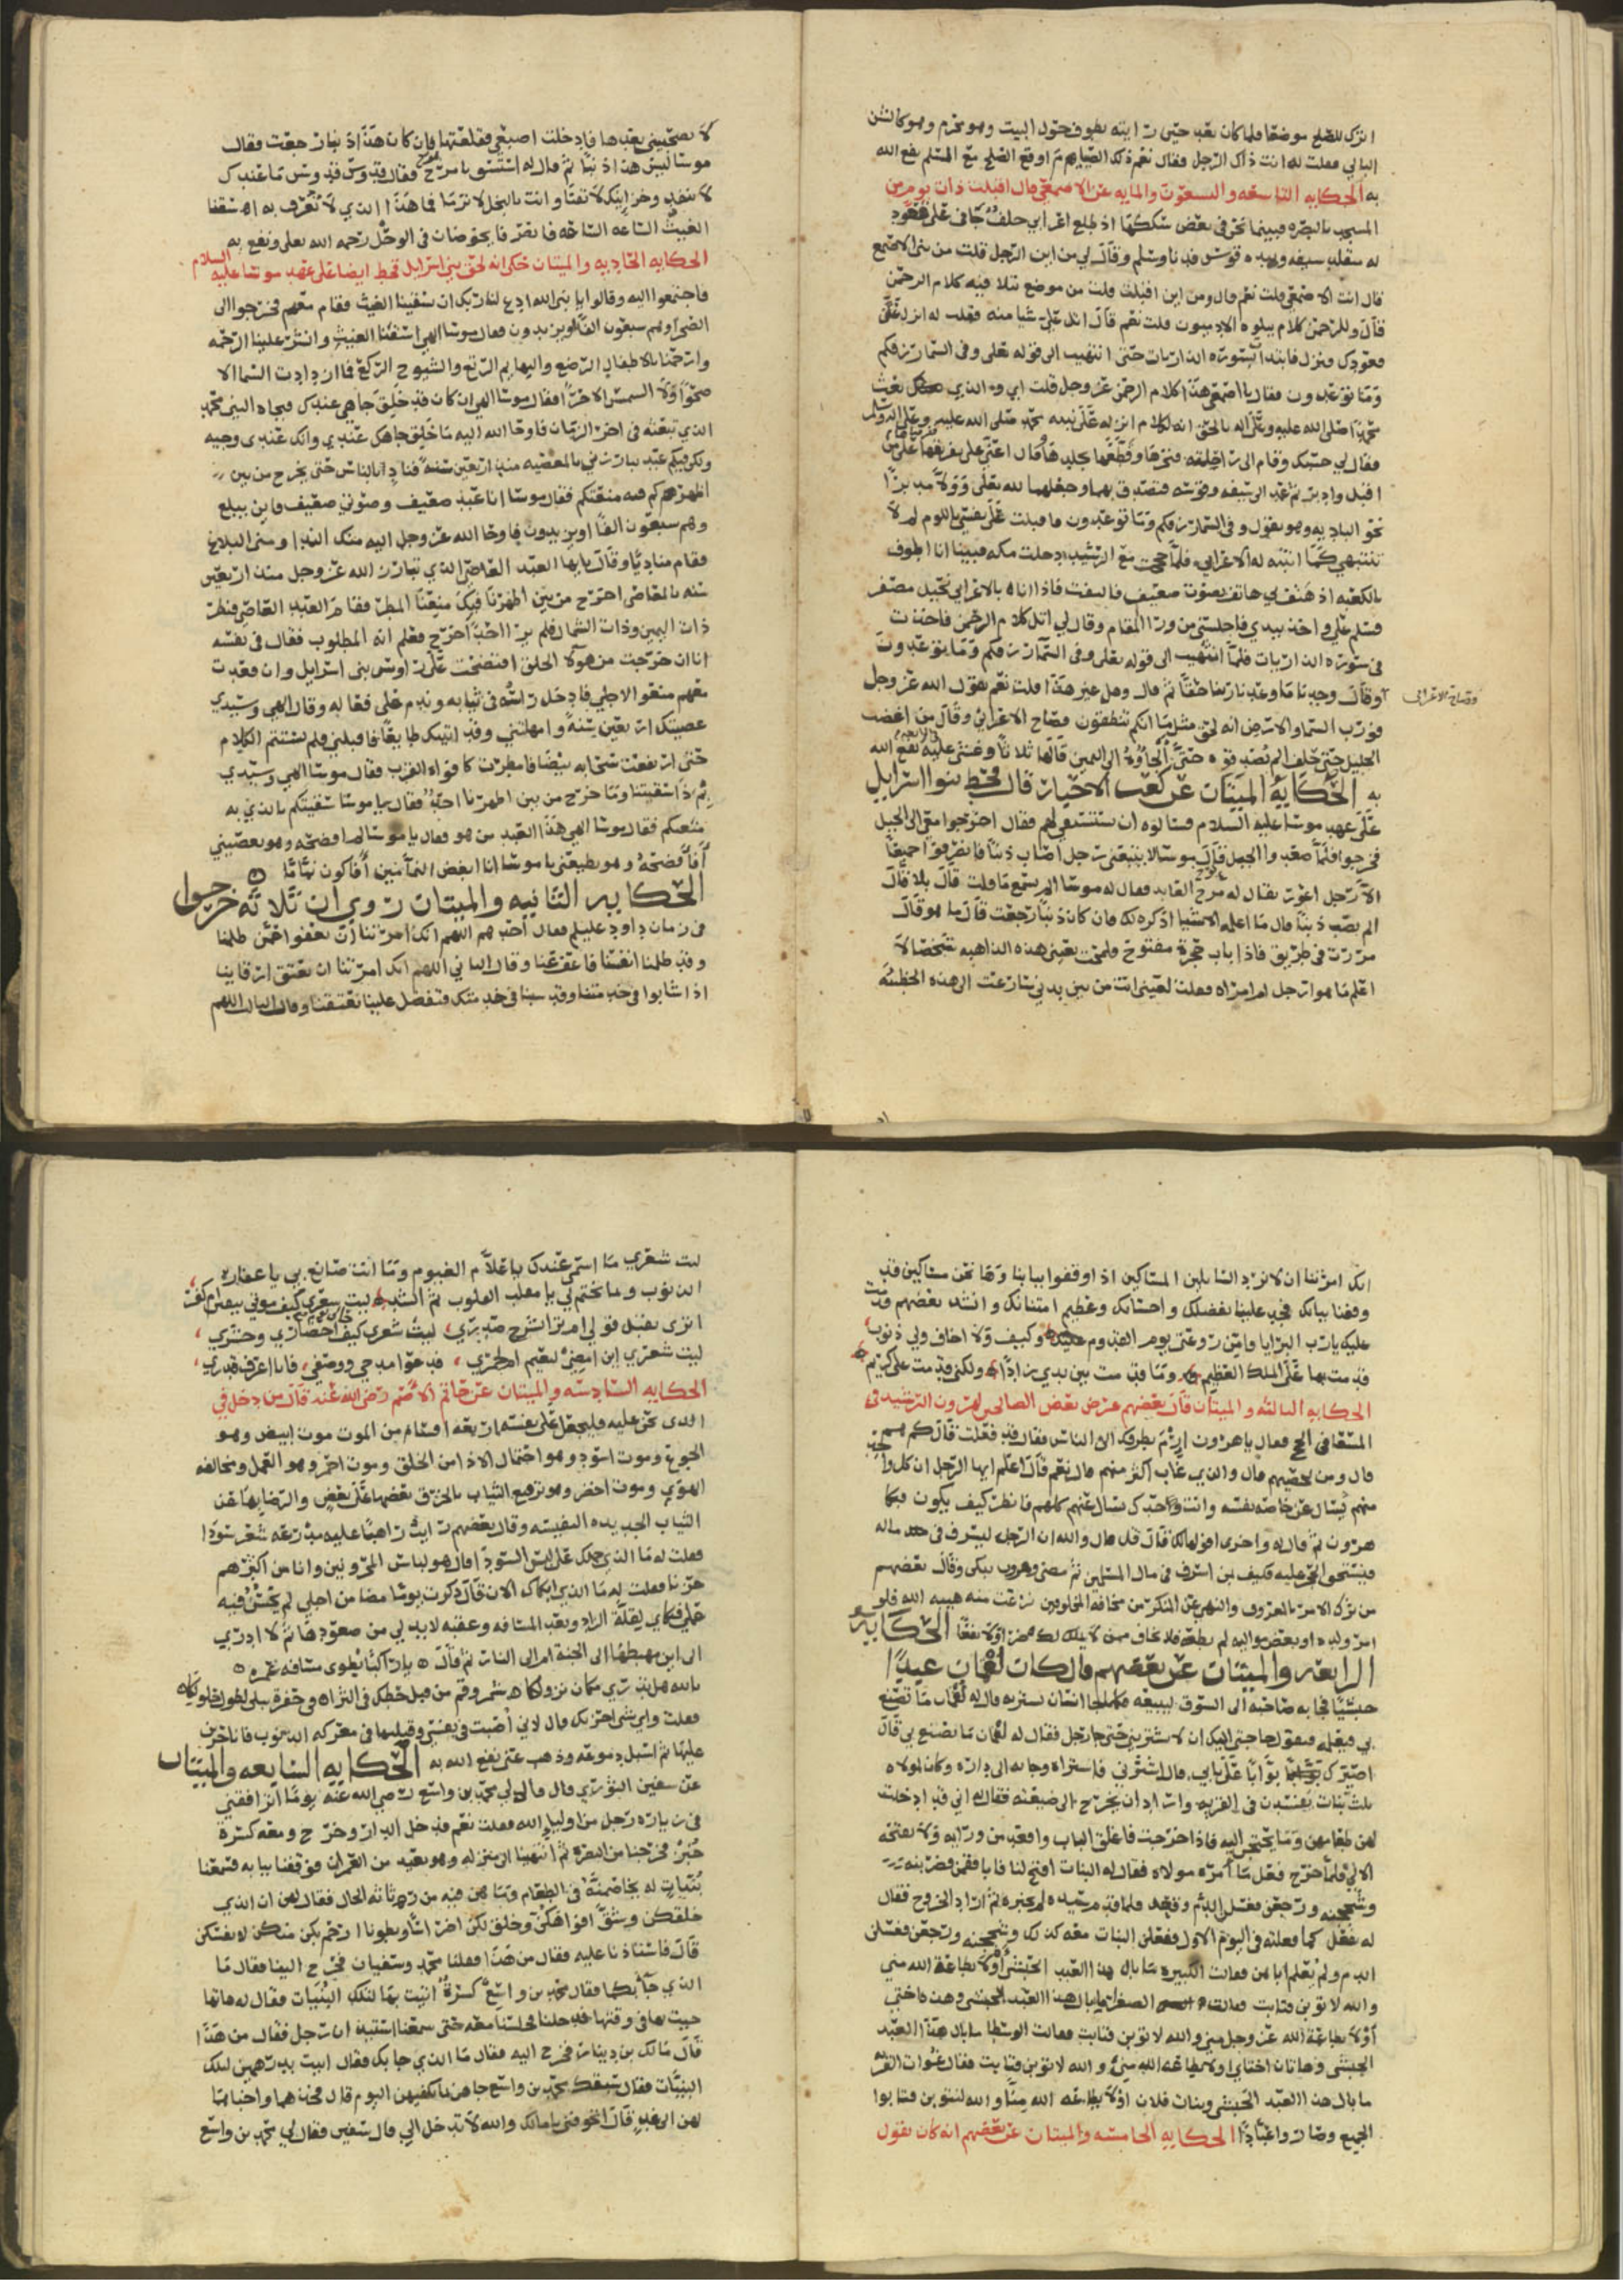 اترك للصلح موضعا فلما كان بعد حتى رايته يطوف حول البيت وهو محرم وهو كالشن
البالي فقلت له انت ذاك الرجل فقال نعم ذلك الصيام ثم اوقع الصلح مع المسلم نفع الله
به الحكايه التاسعه والتسعون والمايه عن الاصمعي قال اقبلت ذات يوم من
المسجد بالبصره فبينما نحن في بعض سككها اذ طلع اعرابي جلف جافي على قعود
له متقلد سيفه وبيده قوس فدنا وسلم وقال لي من اين الرجل قلت من بني الاصمع
قال انت الاصمعي قلت نعم قال ومن اين اقبلت قلت من موضع يتلا فيه كلام الرحمن
قال وللرحمن كلام يتلوه الادميون قلت نعم قال اتل علي شيا منه فقلت له انزل عن
قعودك فنزل فابتدات بسورة الذاريات حتى انتهيت الى قوله تعلى وفي السما رزقكم
وما توعدون فقال يا اصمعي هذا كلام الرحمن عز وجل قلت اي والذي بعث
محمدا صلى الله عليه وعلى اله بالحق انه لكلام انزله على نبيه محمد صلى الله عليه وعلى اله وسلم
فقال لي حسبك وقام الى راحلته فنحرها وقطعها بجلدها وقال اعني على تفريقها على من
اقبل وادبر ثم عمد الى سيفه وقوسه فتصدق بهما وجعلهما لله تعلى وولا مدبرا
نحو الباديه وهو يقول وفي السما رزقكم وما توعدون فاقبلت على نفسي باللوم لم لا
تنتبهي كما انتبه له الاعرابي فلما حججت مع الرشيد دخلت مكه فبينا انا اطوف
بالكعبه اذ هتف بي هاتف بصوت ضعيف فالتفت فاذا انا بالاعرابي نحيل مصفر
فسلم علي واخذ بيدي فاجلسني من ورا المقام وقال لي اتل كلام الرحمن فاخذت
في سورة الذاريات فلما انتهيت الى قوله تعلى وفي السما رزقكم وما توعدون
وقال وجدنا ما وعدنا ربنا حقا ثم قال وهل غير هذا قلت نعم يقول الله عز وجل
وصاح الاعرابي
فورب السما والارض انه لحق مثل ما انكم تنطقون فصاح الاعرابي وقال من اغضب
الجليل حتى حلف الم يصدقوه حتى الجاوه الى اليمين قالها ثلاثا وغشي عليه نفع الله
به الحكاية الميتان عن كعب الاحبار قال قحط بنوا اسرايل
على عهد موسا عليه السلام فسالوه ان يستسقي لهم فقال اخرجوا معي الى الجبل
فخرجوا فلما صعدوا الجبل قال موسا لا يتبعني رجل اصاب ذنبا فانصرفوا جميعا
الا رجل اعور يقال له برخ العابد فقال له موسا الم تسمع ما قلت قال بلا قال
الم تصب ذنبا قال ما اعلمه الا شيا اذكره لك فان كان ذنبا رجعت قال ما هو قال
مررت في طريق فاذا باب حجرة مفتوح فلمحت بعيني هذه الذاهبه شخصا لا
اعلم ما هو ارجل ام امراه فقلت لعيني انت من بين بدني سارعت الى هذه الخطيئه
لا تصحبيني بعدها فادخلت اصبعي فقلعتها فان كان هذا ذنبا رجعت فقال
موسا ليس هذا ذنبا ثم قال له استسق يا برخ فقال قدوس قدوس ما عندك
لا ينفد وخزاينك لا تفنا وانت بالبخل لا ترما فما هذا الذي لا تعرف به اسقنا
الغيث الساعه الساعه فانصرفا يخوضان في الوحل رحمه الله تعلى ونفع به
الحكايه الحاديه والميتان حكي انه لحق بني اسرايل قحط ايضا على عهد موسا عليه السلام
فاجتمعوا اليه وقالوا يا نبي الله ادع لنا ربك ان يسقينا الغيث فقام معهم فخرجوا الى
الصحرا وهم سبعون الفا او يزيدون فقال موسا الهي اسقنا الغيث وانشر علينا الرحمه
وارحمنا بالاطفال الرضع والبهايم الرتع والشيوخ الركع فما ازدادت السما الا
صحوا ولا الشمس الا حرا فقال موسا الهي ان كان قد خلق جاهي عندك فبجاه النبي محمد
الذي تبعثه في اخر الزمان فاوحا الله اليه ما خلق جاهك عندي وانك عندي وجيه
ولكن فيكم عبد يبارزني بالمعصيه منذ اربعين سنة فناد بالناس حتى يخرج من بين
اظهركم فبه منعتكم فقال موسا انا عبد ضعيف وصوتي ضعيف فاين يبلغ
وهم سبعون الفا او يزيدون فاوحا الله عز وجل اليه منك الندا ومني البلاغ
فقام مناديا وقال يا ايها العبد العاصي الذي تبارز الله عز وجل منذ اربعين
سنه بالمعاصي اخرج من بين اظهرنا فبك منعنا المطر فقام العبد العاصي فنظر
ذات اليمين وذات الشمال فلم ير احدا خرج فعلم انه المطلوب فقال في نفسه
انا ان خرجت من هولا الخلق افتضحت على روس بني اسرايل وان قعدت
معهم منعوا لاجلي فادخل راسه في ثيابه وندم على فعاله وقال الهي وسيدي
عصيتك اربعين سنة وامهلتني وقد اتيتك طايعا فاقبلني فلم يستتم الكلام
حتى ارتفعت سحابه بيضا فامطرت كافواه القرب فقال موسا الهي وسيدي
بم ذا سقيتنا وما خرج من بين اظهرنا احد فقال يا موسا سقيتكم بالذي به
منعتكم فقال موسا الهي هذا العبد من هو فقال يا موسا لم افضحه وهو يعصيني
أفأفضحه وهو يطيعني يا موسا انا ابغض النمامين أفاكون نماما
الحكايه الثانيه والميتان روي ان ثلاثه خرجوا
في زمان داود عليلم فقال احدهم اللهم انك امرتنا ان نعفوا عمن ظلمنا
وقد ظلمنا انفسنا فاعف عنا وقال الثاني اللهم انك امرتنا ان نعتق ارقابنا
اذا شابوا في خدمتنا وقد شبنا في خدمتك فتفضل علينا بعتقنا وقال الثالث اللهم
انك امرتنا ان لا نرد السايلين المساكين اذا اوقفوا ببابنا وها نحن مساكين قد
وقفنا ببابك فجد علينا بفضلك واحسانك وعظيم امتنانك وانشد بعضهم قدمت
عليك يارب البرايا وامن روعتي يوم القدوم وكيف ولا اخاف ولي ذنوب
قدمت بها على الملك العظيم وما قدمت بين يدي زادا ولكني قدمت على كريم
الحكايه الثالثه والميتان قال بعضهم عرض بعض الصالحين لهرون الرشيد في
المسعا في الحج فقال يا هرون ارم بطرفك الى الناس فقال قد فعلت قال كم هم
قال ومن يحصيهم قال والذي غاب اكثر منهم قال نعم قال اعلم ايها الرجل ان كل واحد
منهم يسال عن خاصة نفسه وانت وحدك تسال عنهم كلهم فانظر كيف يكون فبكا
هرون ثم قال له واخرى اقولها لك قال قل قال والله ان الرجل ليسرف في ماله
فيستحق الحجر عليه فكيف بمن اسرف في مال المسلمين ثم مضى وهرون يبكي وقال بعضهم
من ترك الامر بالمعروف والنهي عن المنكر من مخافة المخلوقين نزعت منه هيبه الله فلو
امر ولده او بعض مواليه لم يطعه فلا تخاف من لا يملك لك ضرا ولا نفعا الحكايه
الرابعه والميتان عن بعضهم قال كان لقمان عبدا
حبشيا فجا به صاحبه الى السوق ليبيعه فكلما جا انسان يشتريه قال له لقمان ما تصنع
بي فيعلمه فيقول حاجتي اليك ان لا تشتريني حتى جا رجل فقال له لقمان ما تصنع بي قال
اصيرك بوابا على بابي قال اشترني فاشتراه وجا به الى داره وكان لمولاه
ثلث بنات يفسدن في القريه واراد ان يخرج الى ضيعته فقال له اني قد ادخلت
لهن طعامهن وما يحتجن اليه فاذا خرجت فاغلق الباب واقعد من ورايه ولا تفتحه
الا لي فلما خرج فعل ما امره مولاه فقال له البنات افتح لنا فابا فقمن فضربنه
وشججنه ورجعن فغسل الدم وقعد فلما قدم سيده لم يخبره ثم اراد الخروج فقال
له فعل كما فعلته في اليوم الاول ففعلن البنات معه كذلك وشججنه ورجعن فغسلن
الدم ولم يعلم اباهن فقالت الكبيره ما بال هذا العبد الحبشي اولا بطاعة الله مني
والله لا توبن فتابت فقالت الصغرا ما بال هذا العبد الحبشي وهذه اختي
اولا بطاعة الله عز وجل مني والله لا توبن فتابت فقالت الوسطا ما بال هذا العبد
الحبشي وهاتان اختاي اولا بطاعة الله مني والله لا توبن فتابت فقال غوات القريه
ما بال هذا العبد الحبشي وبنات فلان اولا بطاعه الله منا والله لنتوبن فتابوا
الجميع وصاروا عبادا الحكايه الخامسه والميتان عن بعضهم انه كان يقول
ليت شعري ما اسمي عندك ياعلام الغيوم وما انت صانع بي يا غفار
الذنوب وما تختم لي يا مقلب القلوب ثم انشد ليت شعري كيف موتي
اترى يقبل قولي ام ترا شرح صدري، ليت شعري كيف احضاري وحشري
ليت شعري اين امضي لنعيم ام لجمري، قد عوا مدحي ووصفي، فانا اعرف قدري
الحكايه السادسه والميتان عن حاتم الاصم رضي الله عنه قال من دخل في
الذي نحن عليه فليجعل على نفسه اربعه اقسام من الموت موت ابيض وهو
الجوع وموت اسود وهو احتمال الاذا من الخلق وموت احمر وهو العمل ومخالفه
الهوى وموت اخضر وهو ترقيع الثياب بالخرق بعضها على بعض والرضا بها عن
الثياب الجديده النفيسه وقال بعضهم رايت راهبا عليه مدرعه شعر سودا
فقلت له ما الذي حملك على لبس السودا قال هو لباس المحزونين وانا من اكثرهم
حزنا فقلت له ما الذي ابكاك الان قال ذكرت يوما مضا من اجلي لم يحسن فيه
عملي فبكاي لقلة الزاد وبعد المسافه وعقبه لا بد لي من صعودها ثم لا ادري
الى اين مهبطها الى الجنة ام الى النار ثم قال يا راكبا يطوى مسافة عمره
بالله هل تدري مكان نزولكا شمر وقم من قبل حطك في الثرا في حفرة تبلى بطول حلولكا
فقلت واي شي احزنك قال لاني أصبت في نفسي وقبلتها في معركه الذنوب فانا حزين
عليها ثم اسبل دموعه وذهب عني نفع الله به الحكايه السابعه والميتان
عن سفين الثوري قال قال لي محمد بن واسع رضي الله عنه يوما اترافقني
في زيارة رجل من اوليا الله فقلت نعم فدخل الدار وخرج ومعه كسرة
خبز فخرجنا من البصره ثم انتهينا الى منزله وهو بعيد من العمران فوقفنا ببابه فسمعنا
بنيات له يخاصمنه في الطعام وما هن فيه من رثاثه الحال فقال لهن ان الذي
خلقكن وشق افواهكن وخلق لكن اضراسا وبطونا ارحم بكن منكن لانفسكن
قال فاستاذنا عليه فقال من هذا فقلنا محمد وسفيان فخرج الينا فقال ما
الذي جا بكما فقال محمد بن واسع كسرة اتيت بها لتلك البنيات فقال له هاتها
جيت بها في وقتها فدخلنا فجلسنا معه حتى سمعنا استيذان رجل فقال من هذا
قال مالك بن دينار فخرج اليه فقال ما الذي جا بك فقال اتيت بدرهمين لتلك
البنيات فقال سبقك محمد بن واسع جاهن ما يكفيهن اليوم قال فخذهما واحبهما
لهن الى غد قال اتخوفني يا مالك والله لا تدخل الي قال سفين فقال لي محمد بن واسع